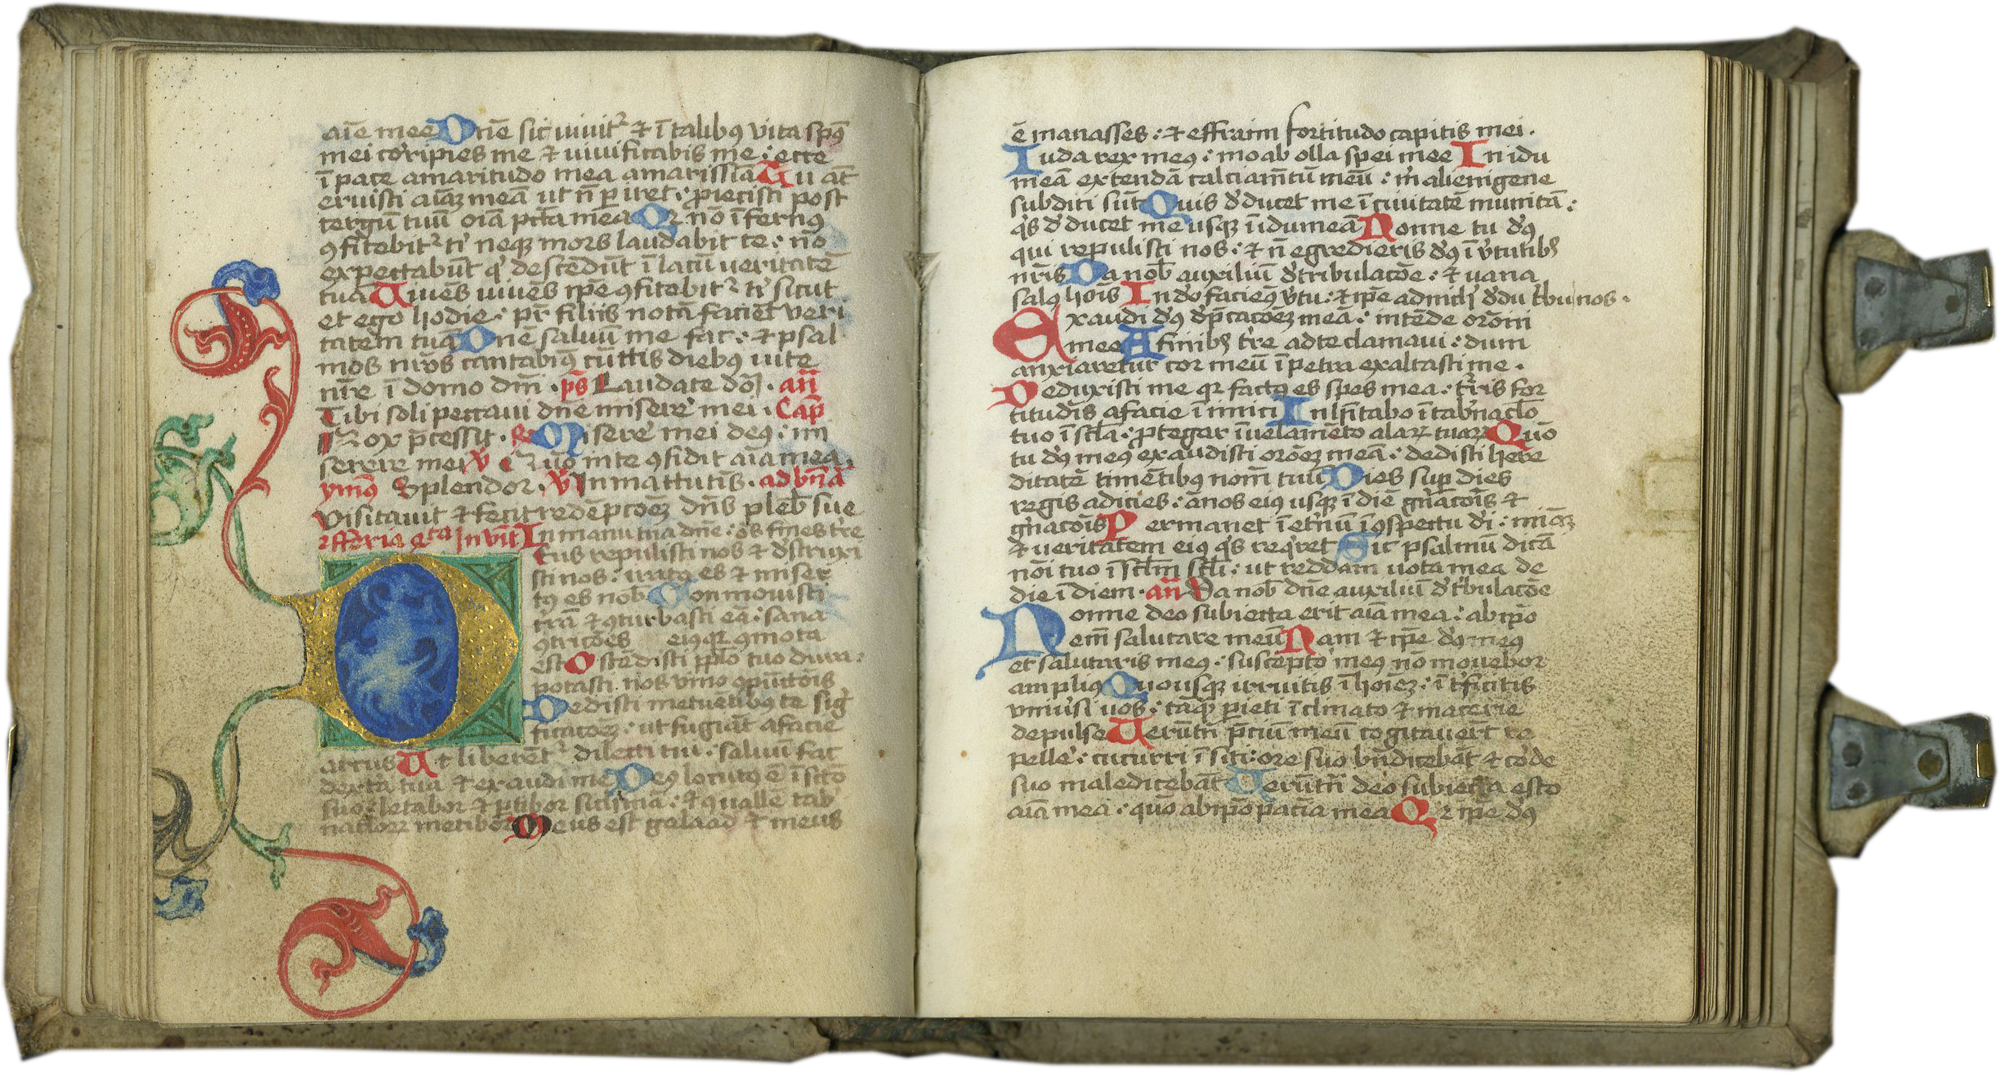 aīe mee Dñe sic uiuitᷣ ⁊ ī talibꝯ vita spūs
mei coripies me ⁊ uiuificabis me : ecce
ī pace amaritudo mea amarissīa Tu aūt
eruisti aīaꝫ meā ut nō piret : proiecisti post
tergū tuū oīa pctā mea Qꝛ nō īfernꝯ
ꝯfitebitᷣ ti neqꝫ mors laudabit te : nō
expectabūt q descēdūt ī lacū ueritatē
tuā Viuēs uiuēs ipē ꝯfitebitᷣ ti sicut
et ego hodie : pr̄ filiis notā faciet veri
tatem tuā Dñe saluū me fac : ⁊ psal
mos nr̄os cantabimꝯ cūctis diebꝯ uite
nr̄e ī domo dnī . ps Laudate dō . añ
Tibi soli peccaui dñe miserẽ mei . Cap̄
Nox p̄cessit . Miserẽ mei deꝯ : mi
serere mei ꝟ Qm̄ in te ꝯfidit aīa mea .
ymnꝯ Splendor . ꝟ In matutinis . ad bñd
Visitauit ⁊ fecit redēpcoēꝫ dn̄s pleb sue
fferia Invit In manu tua dñe : oēs fines tr̄e
Deus repulisti nos ⁊ dstruxi
sti nos : iratꝯ es ⁊ miser
tꝯ es nob Conmouisti
trā ⁊ ꝯturbasti eā : sana
ꝯtricōes eiꝯ qꝛ ꝯmota
est Ostēdisti pplo tuo dura :
potasti nos vino ꝯpūctōis
Dedisti metuētibꝯ te sig
ficacōeꝫ : ut fugiāt a facie
arcus Ut liberētᷣ dilecti tui : saluū fac
dextā tuā ⁊ exaudi me Deꝯ locutꝯ ē ī scō
suo : letabor ⁊ ptibor sicimā : ⁊ quallē tab
naclorꝝ metibor Meus est galaad ⁊ meus
ē manasses : ⁊ effraim fortitudo capitis mei .
Iuda rex meꝯ : moab olla spei mee In idu
meā extendā calciam̄tū meū : m̄ alienigene
subditi sūt Quis dducet me ī ciuitatē munitā :
qs dducet me usqꝫ ī idumeā Nonne tu dꝯ
qui repulisti nos : ⁊ nō egredieris dꝯ ī vtutibꝫ
nr̄is Da nob auxiliū d tribulacōe : ⁊ uana
salꝯ hoīs In dō faciemꝯ vtu : ⁊ ipē ad nichi ddu tbu nos .
Exaudi dꝯ dpcacōeꝫ meā : intēde orōni
mee A finibꝫ tr̄e ad te clamaui : dum
anxiaretur cor meū ī petra exaltasti me .
Deduxisti me qꝛ factꝯ es spes mea : tr̄ris for
titudīs a facie īimici Inhītabo ī tabnaclo
tuo ī sctā : ptegar ī uelamēto alaꝝ tuaꝝ Quō
tu dꝯ meꝯ exaudisti orōeꝫ meā : dedisti here
ditatē timētibus nomī tuū Dies sup dies
regis adicies : ānos eiꝯ usqꝫ ī diē gnācōis ⁊
gnācōis Permanet ī etnū ī ꝯspectu di : mīaꝫ
⁊ ueritatem eiꝯ qs reqret Sic psalmū dicā
nōi tuo ī sclm scli : ut reddam uota mea de
die ī diem . añ Da nob dñe auxiliū d tbulacōe
Nonne deo subiecta erit aīa mea : ab ipō
em̄ salutare meū Nam ⁊ ipē dꝯ meꝯ
et salutaris meꝯ : susceptor meꝯ nō mouebor
ampliꝯ Quousqꝫ irruitis ī hoīeꝫ : ītficitis
vniūsi uos : tāqꝫ pieti īclinato ⁊ macerie
depulse Verūtn̄ pciū meū cogitauēt re
pellẽ : cucurri ī siti : ore suo bn̄dicebāt ⁊ corde
suo maledicebāt Verūtn̄ deo subiecta esto
aīa mea : quō ab ipō paciā mea Qꝛ ipē dꝯ